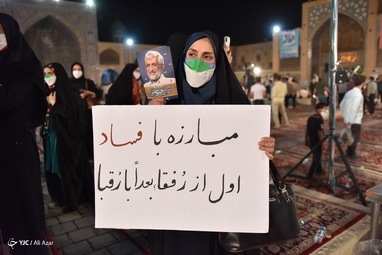 مبارزه با فساد
اول از رُفقا بعداً با رُقبا
YJC / Ali Azar